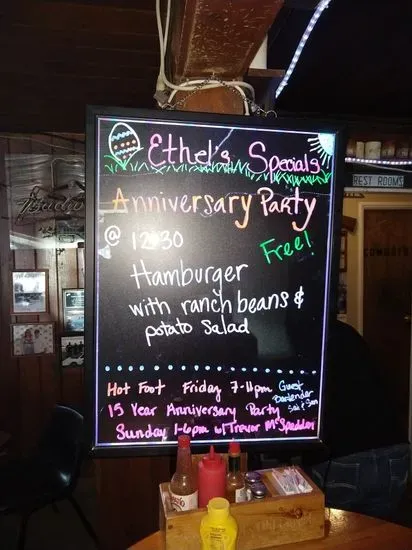 Ethel's Specials
Anniversary Party
@ 12:30
Free!
Hamburger
with ranch beans &
potato salad
Hot Foot Friday 7-11pm
Guest
Bartender
Sat & Sun
15 Year Anniversary Party
Sunday 1-6pm w/ Trevor McSpadden
REST ROOMS
COWBOYS